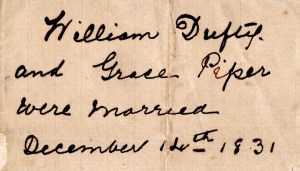 William Dufty.
and Grace Piper
were married
December 12th 1831